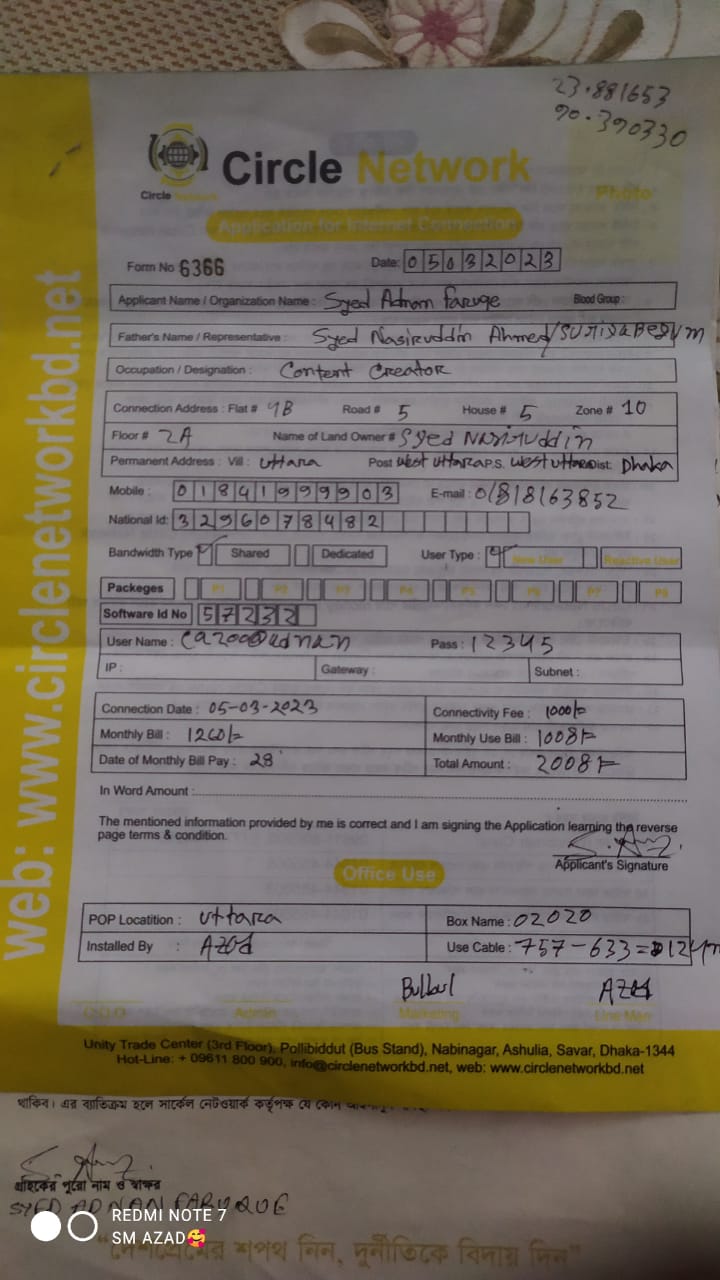 23.881653
90.390330
Circle Network
Circle Network
Photo
Application for Internet Connection
Form No 6366 Date: 05032023
Applicant Name / Organization Name : Syed Adnan Faruqe Blood Group :
Father's Name / Representative : Syed Nasiruddin Ahmed/Suriya Begum
Occupation / Designation : Content Creator
Connection Address : Flat # 4B Road # 5 House # 5 Zone # 10
Floor # 2A Name of Land Owner # Syed Nasiruddin
Permanent Address : Vill : Uttara Post West Uttara P.S. West Uttara Dist: Dhaka
Mobile : 01841999903 E-mail : 01818163852
National Id: 3296078482
Bandwidth Type Shared Dedicated User Type : New User Reactive User
Packeges P1 P2 P3 P4 P5 P6 P7 P8
Software Id No 57232
User Name : Pass : 12345
IP : Gateway : Subnet :
Connection Date : 05-03-2023 Connectivity Fee : 1000/=
Monthly Bill : 1260/= Monthly Use Bill : 1008/=
Date of Monthly Bill Pay : 28 Total Amount : 2008/=
In Word Amount :
The mentioned information provided by me is correct and I am signing the Application learning the reverse
page terms & condition.
Applicant's Signature
Office Use
POP Locatition : Uttara Box Name : 02020
Installed By : Azad Use Cable : 757-633=124m
Bulbul Azad
Admin Marketing Line Man
Unity Trade Center (3rd Floor), Pollibiddut (Bus Stand), Nabinagar, Ashulia, Savar, Dhaka-1344
Hot-Line: + 09611 800 900, info@circlenetworkbd.net, web: www.circlenetworkbd.net
web: www.circlenetworkbd.net
থাকিব। এর ব্যতিক্রম হলে সার্কেল নেটওয়ার্ক কর্তৃপক্ষ যে কোন
গ্রহিকের পুরো নাম ও স্বাক্ষর
SYED ADNAN FARUQUE
REDMI NOTE 7
SM AZAD🥰
"দেশপ্রেমের শপথ নিন, দুর্নীতিকে বিদায় দিন"